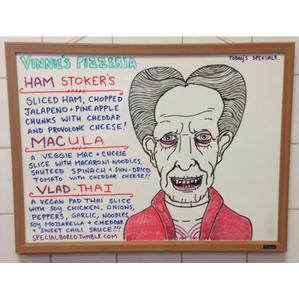 VINNIE'S PIZZERIA
TODAY'S SPECIALS
HAM STOKER'S
SLICED HAM, CHOPPED
JALAPEÑO + PINEAPPLE
CHUNKS WITH CHEDDAR
AND PROVOLONE CHEESE!
MACULA
A VEGGIE MAC + CHEESE
SLICE WITH MACARONI NOODLES,
SAUTEED SPINACH + SUN-DRIED
TOMATO WITH CHEDDAR CHEESE!!
VLAD-THAI
A VEGAN PAD THAI SLICE
WITH SOY CHICKEN, ONIONS,
PEPPERS, GARLIC, NOODLES,
SOY MOZZARELLA + CHEDDAR
+ SWEET CHILI SAUCE!!!
SPECIALBORED.TUMBLR.COM